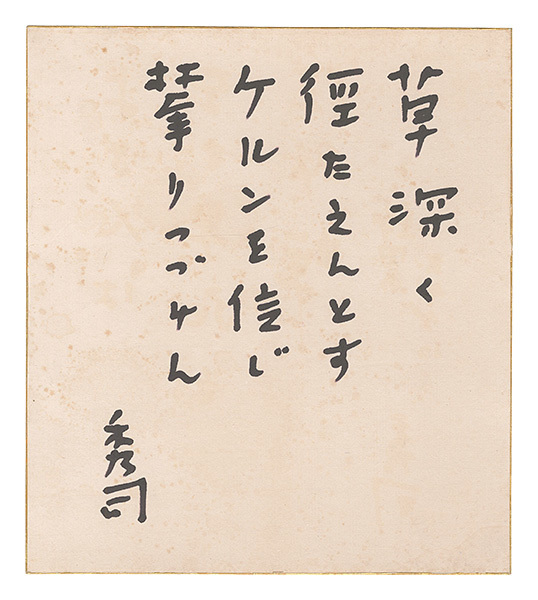 草深く
徑たえんとす
ケルンを信じ
攀りつづけん
秀司